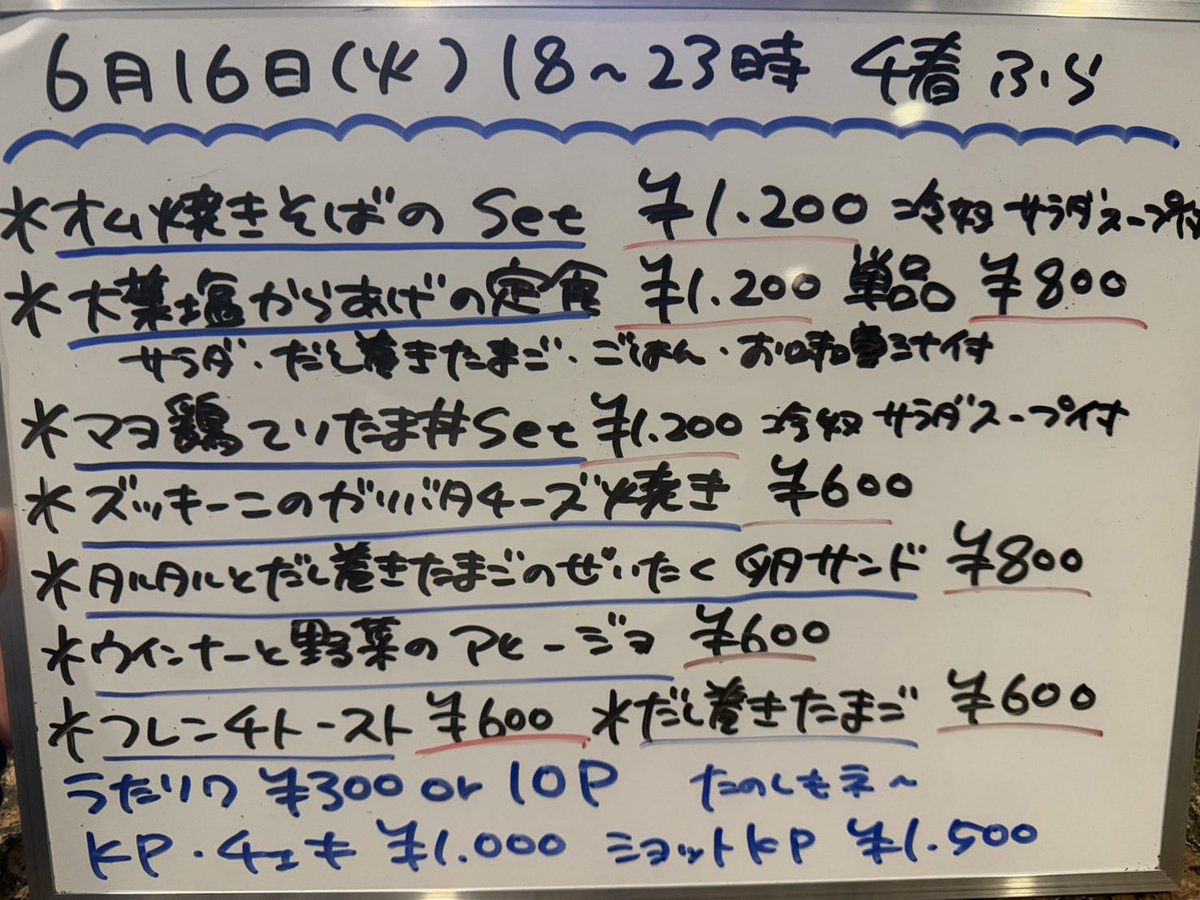 6月16日(火) 18〜23時 4春ふら
*オム焼きそばのSet ¥1.200 冷奴 サラダスープ付
*大葉塩からあげの定食 ¥1.200 単品 ¥800
サラダ・だし巻きたまご・ごはん・お味噌汁付
*マヨ鶏てりたま丼Set ¥1.200 冷奴 サラダスープ付
*ズッキーニのガリバタチーズ焼き ¥600
*タルタルとだし巻きたまごのぜいたく卵サンド ¥800
*ウインナーと野菜のアヒージョ ¥600
*フレンチトースト ¥600 *だし巻きたまご ¥600
うたリク ¥300 or 10P たのしもネ〜
KP・チェキ ¥1.000 ショットKP ¥1.500